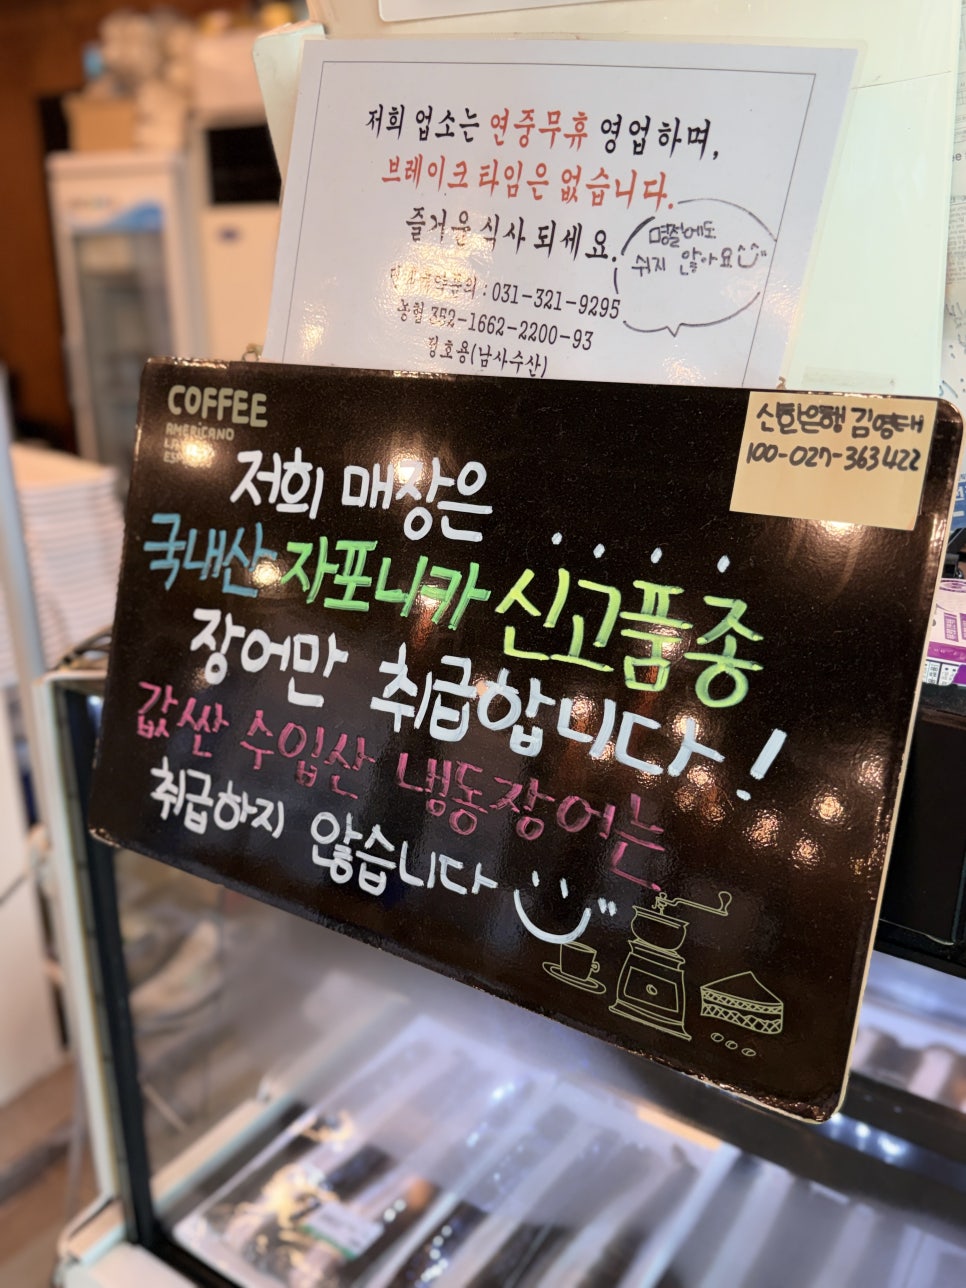 저희 업소는 연중무휴 영업하며,
브레이크타임은 없습니다.
즐거운 식사 되세요.
명절에도
쉬지 않아요
단체예약문의 : 031-321-9295
농협 352-1662-2200-93
김호용(남사수산)
COFFEE
AMERICANO
신한은행 김영태
100-027-363422
저희 매장은 ....
국내산 자포니카 신고품종
장어만 취급합니다!
값싼 수입산 냉동장어는
취급하지 않습니다